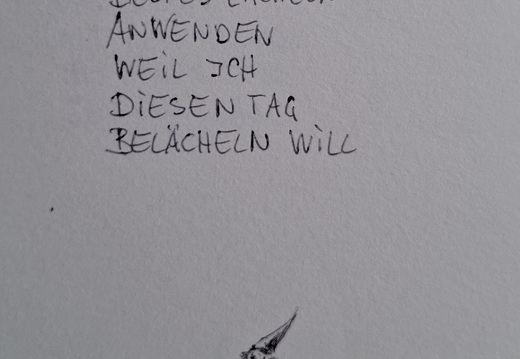 ANWENDEN
WEIL ICH
DIESEN TAG
BELÄCHELN WILL